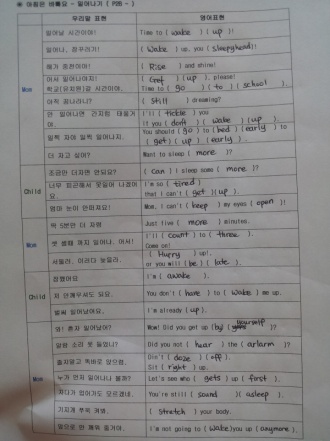 ※ 아침은 바빠요 - 일어나기 ( P28 - )
우리말 표현 영어표현
일어날 시간이야! Time to ( wake ) ( up )!
일어나, 잠꾸러기! ( Wake ) up, you ( sleepyhead )!
해가 중천이야! ( Rise ) and shine!
Mom
어서 일어나야지! ( Get ) ( up ), please!
학교(유치원)갈 시간이야. Time to ( go ) ( to ) ( school ).
아직 꿈나라니? ( Still ) dreaming?
안 일어나면 간지럼 태울거야. I'll ( tickle ) you
if you ( don't ) ( wake ) ( up ).
일찍 자야 일찍 일어나지. You should ( go ) to ( bed ) ( early ) to
( get ) ( up ) ( early ).
더 자고 싶어? Want to sleep ( more )?
조금만 더자면 안돼요? ( Can ) I sleep some ( more )?
Child
너무 피곤해서 못일어 나겠어요. I'm so ( tired )
that I can't ( get ) ( up ).
엄마 눈이 안떠져요! Mom, I can't ( keep ) my eyes ( open )!
딱 5분만 더 자렴 Just five ( more ) minutes.
Mom
셋 셀때 까지 일어나. 어서! I'll ( count ) to ( three ).
Come on!
서둘러. 이러다 늦을라. ( Hurry ) up!,
or you will ( be ) ( late ).
잠깼어요 I'm ( awake ).
Child
저 안깨우셔도 되요. You don't ( have ) to ( wake ) me up.
벌써 일어났어요. I'm already ( up ).
와! 혼자 일어났어? Wow! Did you get up (by) ( yourself )
알람 소리 못 들었니? Did you not ( hear ) the ( arlarm )?
졸지말고 똑바로 앉으렴. Don't ( doze ) ( off ).
Sit ( right ) up.
Mom
누가 먼저 일어나나 볼까? Let's see who ( gets ) up ( first ).
You're still ( sound ) ( asleep ).
기지개 쭈욱 켜봐. ( Stretch ) your body.
앞으로 안 깨워 줄거야. I'm not going to ( wake ) you up ( anymore ).